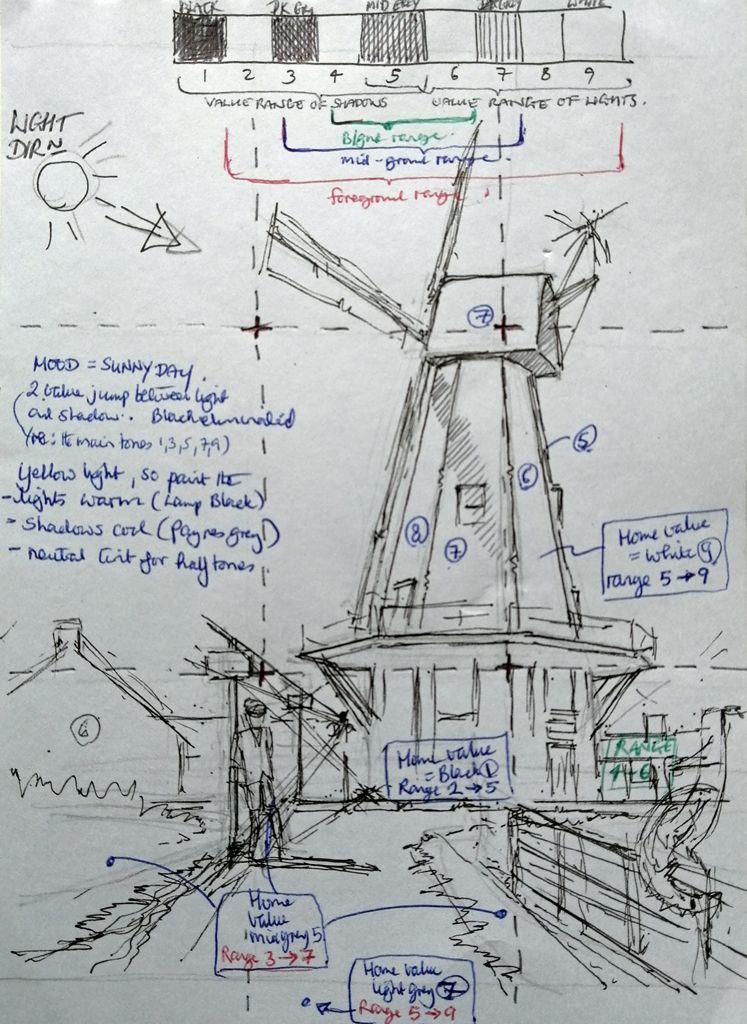 BLACK DK GREY MID GREY WHITE
1 2 3 4 5 6 7 8 9
VALUE RANGE OF SHADOWS VALUE RANGE OF LIGHTS.
B/gnd range.
mid-ground range.
foreground range
LIGHT
DIRN
7
MOOD = SUNNY DAY.
2 value jump between light
and shadow.. Black eliminated
(NB: the main tones 1,3,5,7,9)
Yellow light, so paint the
- lights warm (Lamp Black)
- Shadows cool (Paynes grey)
- neutral tint for half tones.
5
6
8
7
Home value
= white 9
range 5 → 9
6
Home value
= Black 1
Range 2 → 5
RANGE
4 → 6
Home
value
mid grey 5
Range 3 → 7
Home value
light grey 7
Range 5 → 9